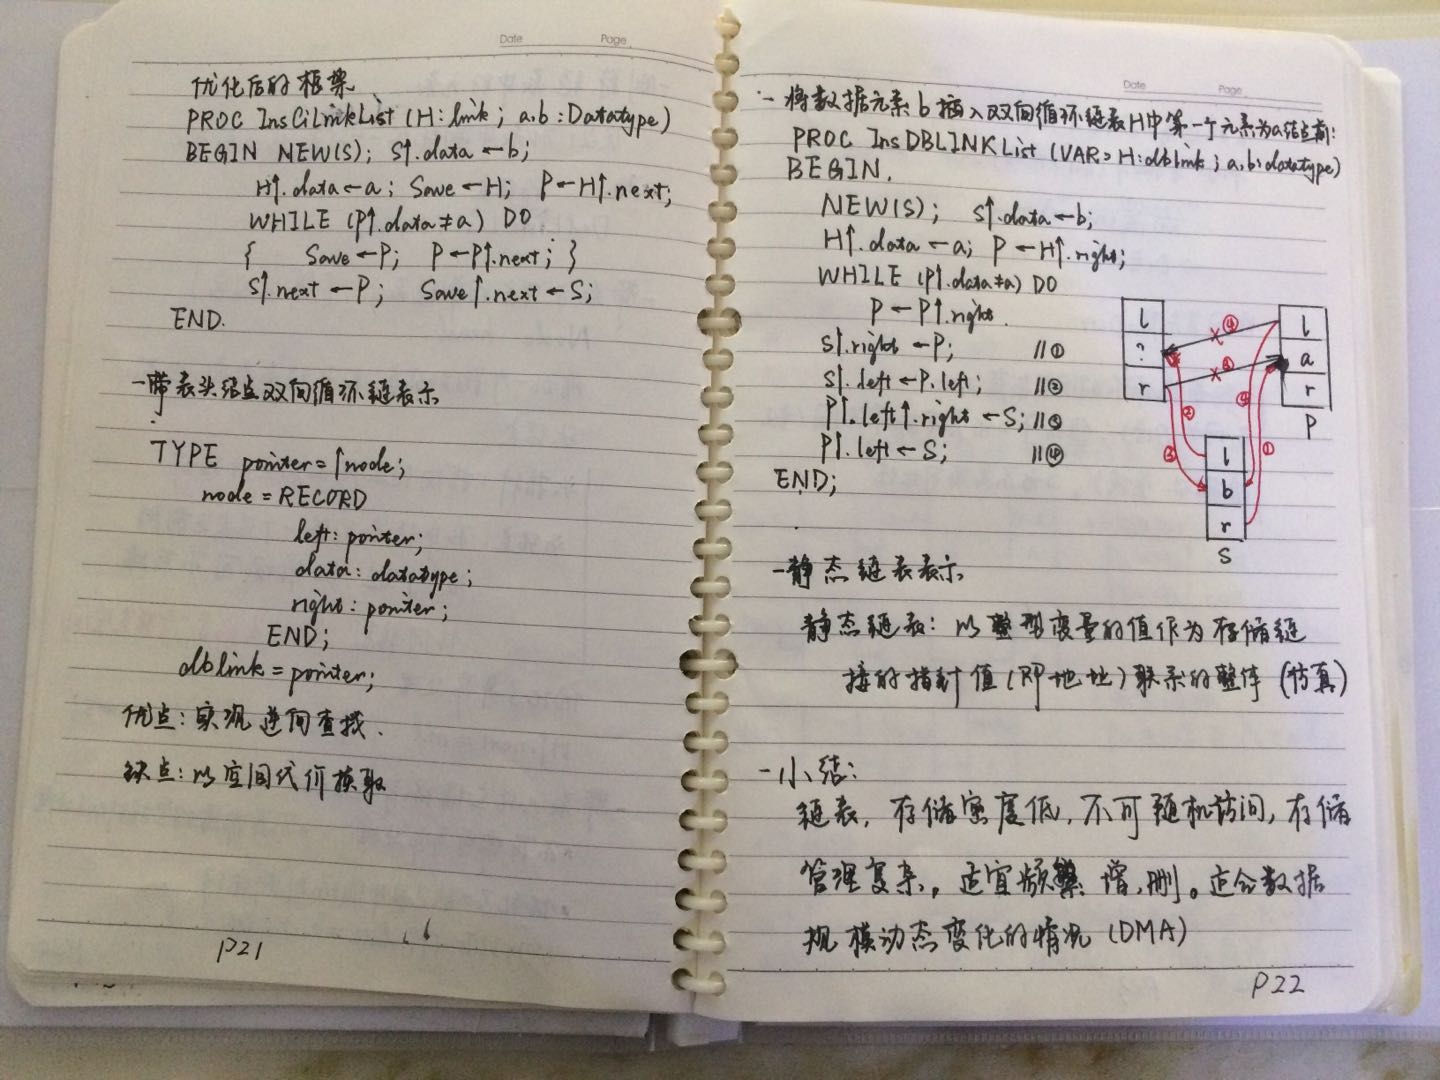 Date Page
优化后的框架
PROC InsCiLinkList (H:link; a,b:Datatype)
BEGIN NEW(S); S↑.data←b;
H↑.data←a; Save←H; P←H↑.next;
WHILE (P↑.data≠a) DO
{ Save←P; P←P↑.next; }
S↑.next←P; Save↑.next←S;
END.
一带表头结点双向循环链表示
TYPE pointer=↑node;
node=RECORD
left: pointer;
data: datatype;
right: pointer;
END;
dblink=pointer;
优点: 实现逆向查找.
缺点: 以空间代价换取
P21
Date Page
- 将数据元素b插入双向循环链表H中第一个元素为a结点前:
PROC InsDBLINKList (VAR H:dblink; a,b:datatype)
BEGIN.
NEW(S); S↑.data←b;
H↑.data←a; P←H↑.right;
WHILE (P↑.data≠a) DO
P←P↑.right.
S↑.right←P; //①
S↑.left←P.left; //②
P↑.left↑.right←S; //③
P↑.left←S; //④
END;
l
?
r
④
③
l
a
r
P
②
③
④
①
l
b
r
S
-静态链表表示
静态链表: 以整型变量的值作为存储链
接的指针值(即地址)联系的整体(仿真)
-小结:
链表, 存储密度低, 不可随机访问, 存储
管理复杂, 适宜频繁增,删。适合数据
规模动态变化的情况 (DMA)
P22